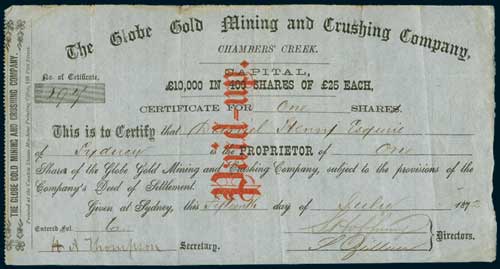 The Globe Gold Mining and Crushing Company,
CHAMBERS' CREEK.
CAPITAL,
£10,000 IN 400 SHARES OF £25 EACH,
No. of Certificate,
597
CERTIFICATE FOR One SHARES.
This is to Certify that Henry Esquire
of Sydney is the PROPRIETOR of One
Share of the Globe Gold Mining and Crushing Company, subject to the provisions of the
Company's Deed of Settlement.
Given at Sydney, this day of 187
Entered Fol.
H A Thompson Secretary.
Directors.
Paid-up.
THE GLOBE GOLD MINING AND CRUSHING COMPANY.